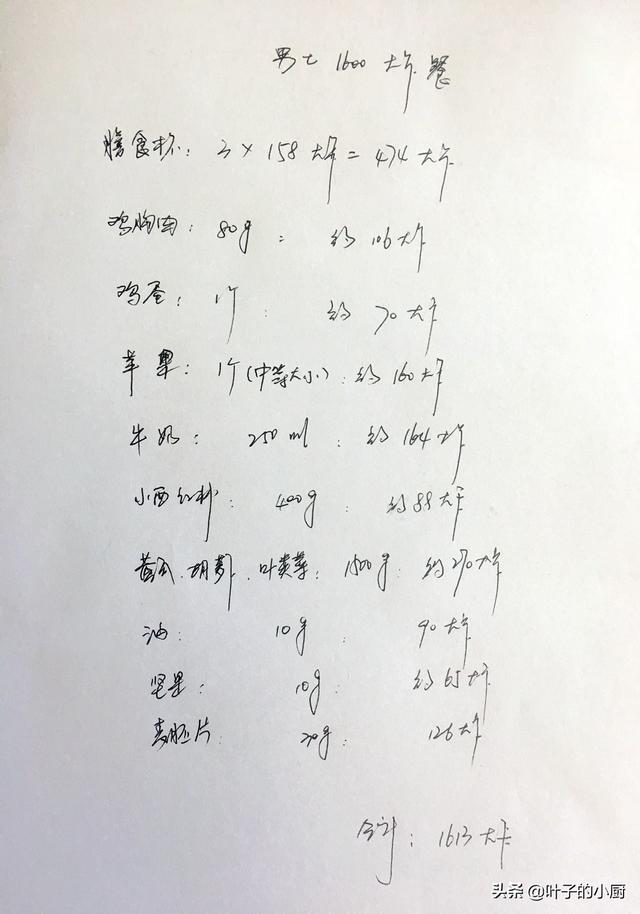 男士1600大卡餐
膳食杯: 3×158大卡=474大卡
鸡胸肉: 80g: 约106大卡
鸡蛋: 1个: 约70大卡
苹果: 1个(中等大小): 约160大卡
牛奶: 250ml: 约164大卡
小西红柿: 400g: 约88大卡
黄瓜.胡萝卜.叶类菜: 1500g: 约270大卡
油: 10g: 90大卡
坚果: 10g: 约65大卡
麦胚片: 30g: 126大卡
合计: 1613大卡
头条@叶子的小厨